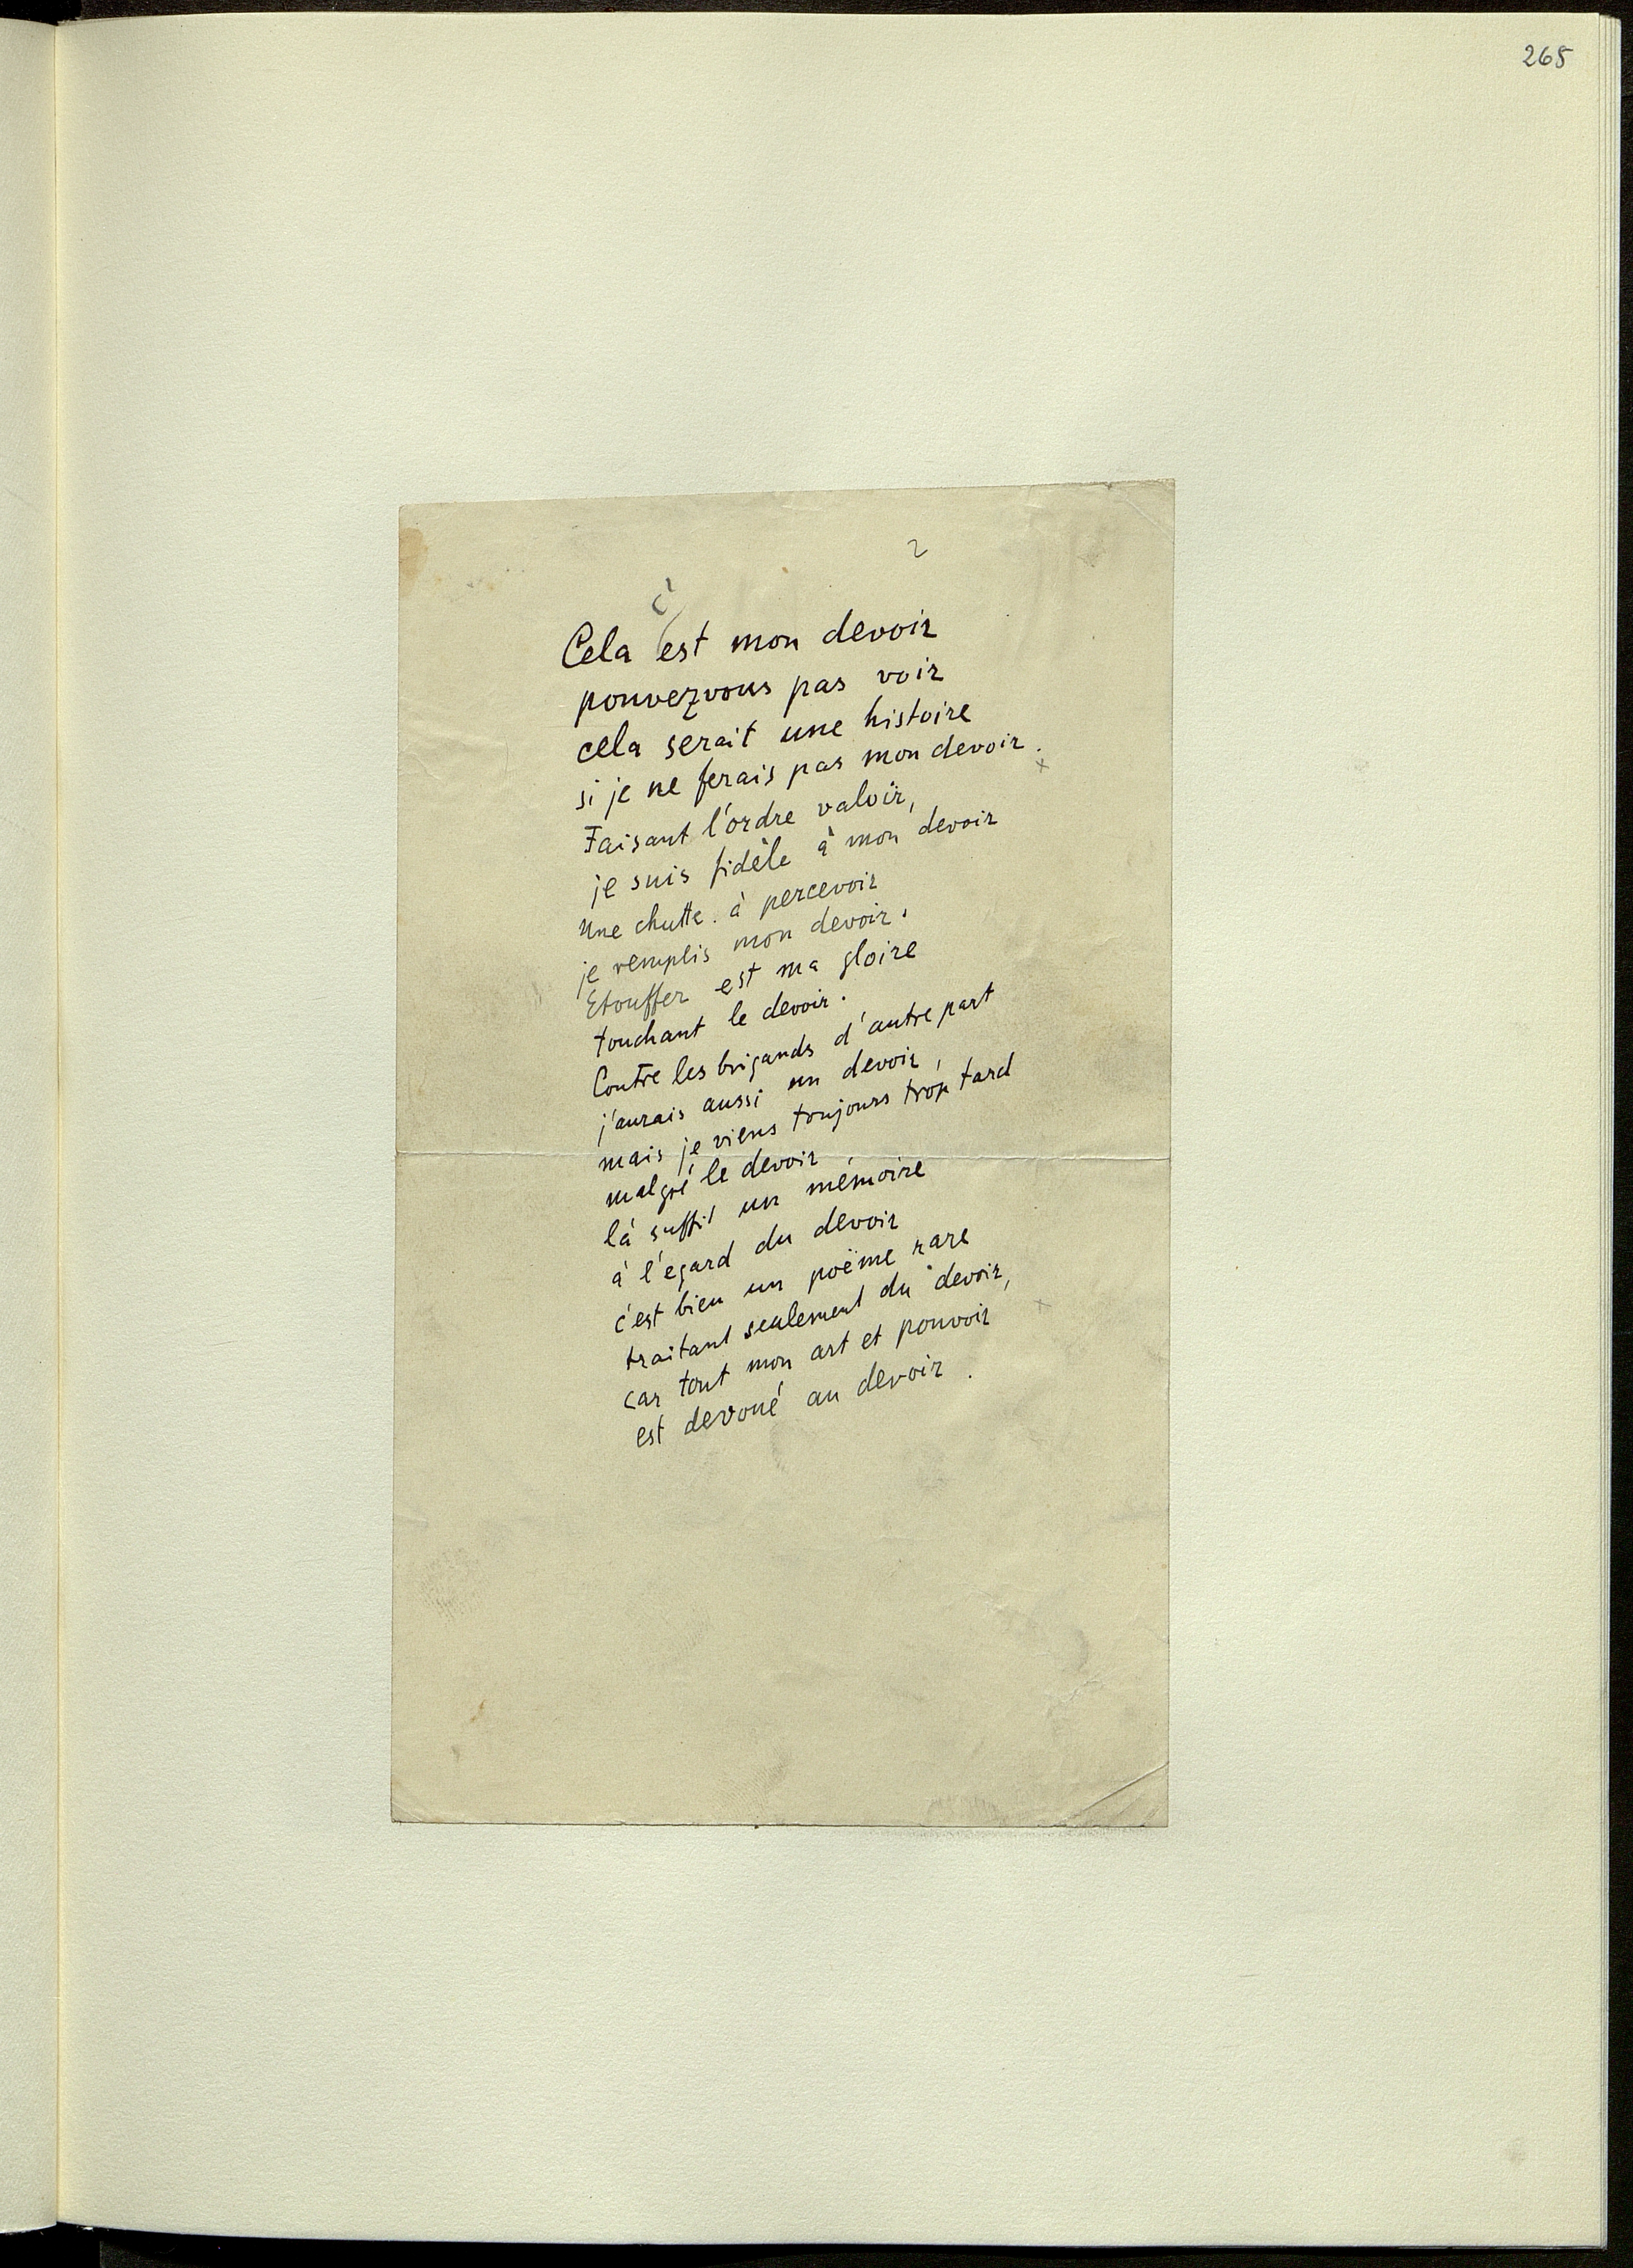 265
2
c'
Cela est mon devoir
pouvezvous pas voir
cela serait une histoire
si je ne ferais pas mon devoir.
x
Faisant l'ordre valoir,
je suis fidèle à mon devoir
Une chutte à percevoir
je remplis mon devoir.
Etouffer est ma gloire
touchant le devoir.
Contre les brigands d'autre part
j'aurais aussi un devoir,
mais je viens toujours trop tard
malgré le devoir
là suffit un mémoire
à l'égard du devoir
c'est bien un poëme rare
traitant seulement du devoir,
x
car tout mon art et pouvoir
est devoué au devoir.